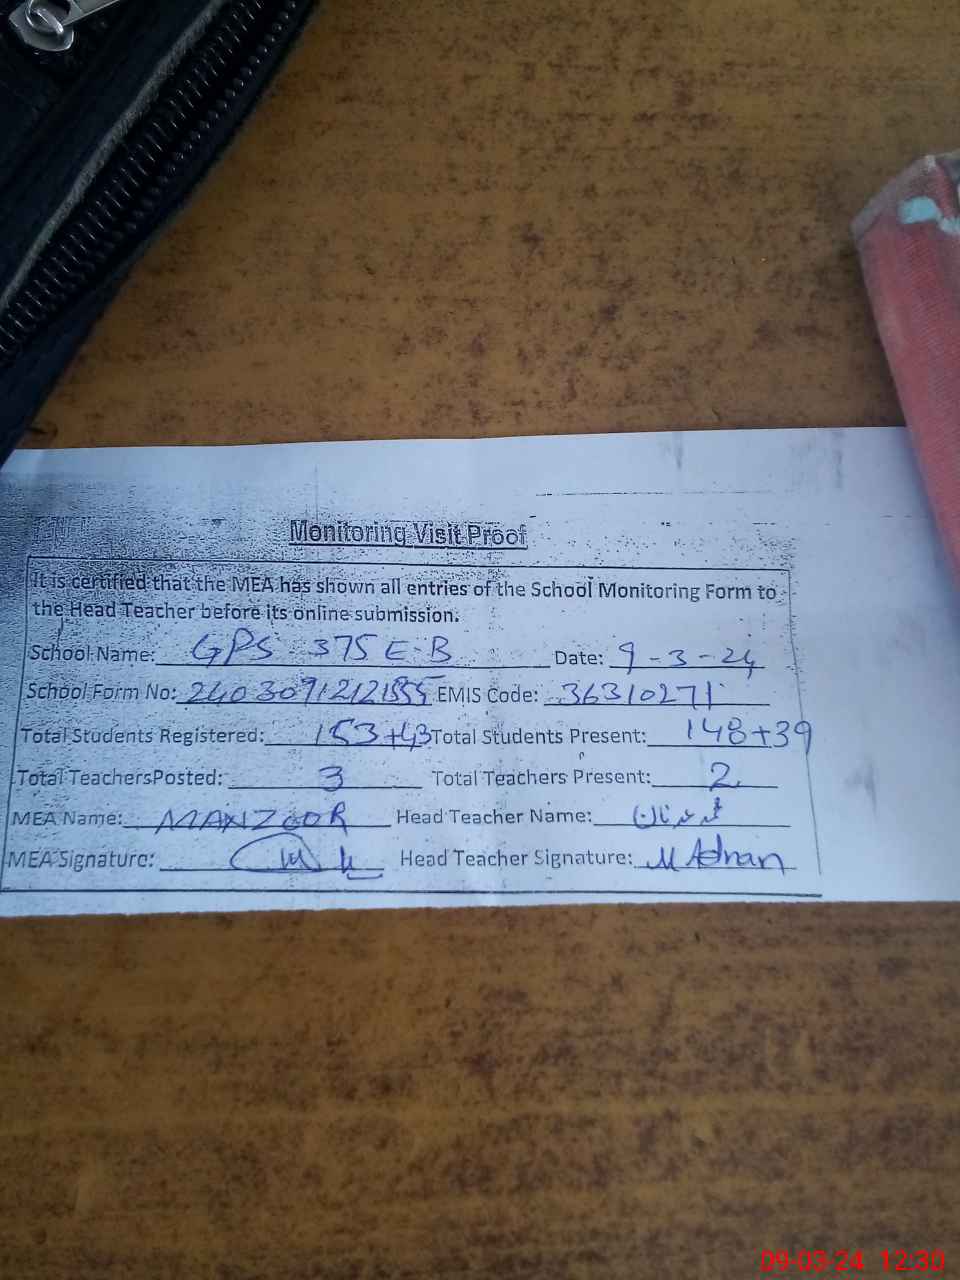 Monitoring Visit Proof
It is certified that the MEA has shown all entries of the School Monitoring Form to
the Head Teacher before its online submission.
School Name: GPS 375 E-B Date: 9-3-24
School Form No: EMIS Code: 36310271
Total Students Registered: 153+43 Total Students Present: 148+39
Total TeachersPosted: 3 Total Teachers Present: 2
MEA Name: MANZOOR Head Teacher Name: محمد عدنان
MEA Signature: Head Teacher Signature: M Adnan
09-03-24 12:30